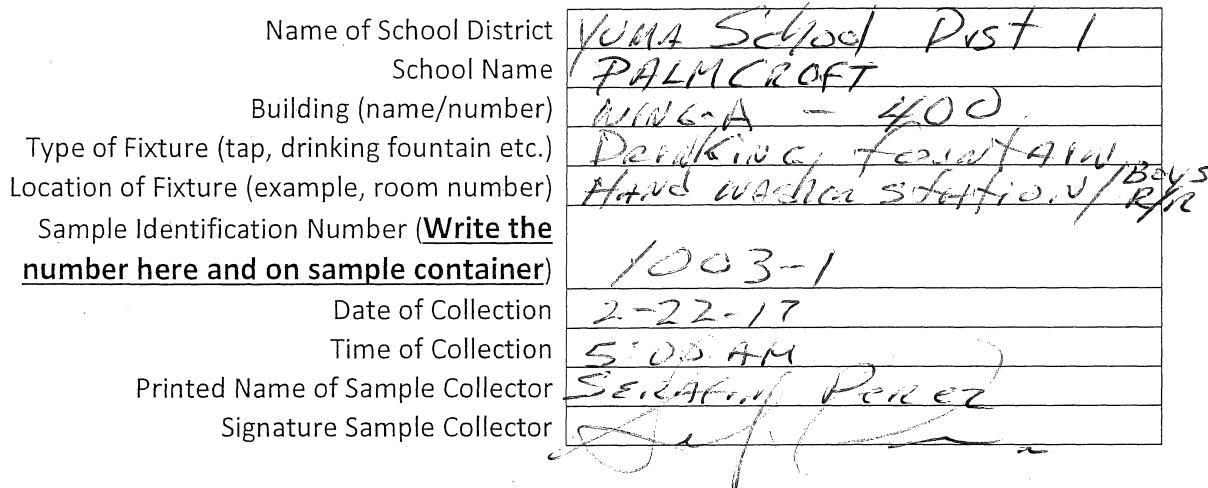 Name of School District YUMA School Dist 1
School Name PALMCROFT
Building (name/number) WING-A - 400
Type of Fixture (tap, drinking fountain etc.) Drinking fountain
Location of Fixture (example, room number) Hand washer station/Boys R/R
Sample Identification Number (Write the
number here and on sample container) 1003-1
Date of Collection 2-22-17
Time of Collection AM
Printed Name of Sample Collector SERAFIN Perez
Signature Sample Collector